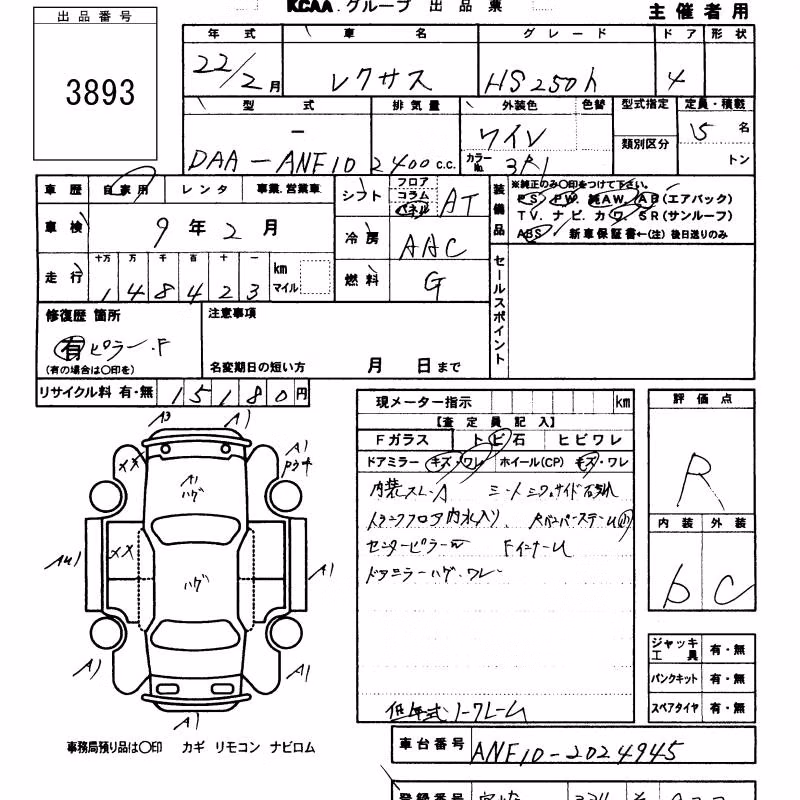 出品番号
3893
KCAA.グループ 出品票
主催者用
年式 車名 グレード ドア 形状
22/2月 レクサス HS250h 4
型式 排気量 外装色 色替 型式指定 定員・積載
類別区分
DAA-ANF10 2400c.c. ワイン カラーNo. 3R1 5名
トン
車歴 自家用 レンタ 事業.営業車
車検 9年2月
走行 十万 万 千 百 十 一 km マイル
148423
シフト フロア コラム パネル AT
冷房 AAC
燃料 G
装備品
※純正のみ〇印をつけて下さい。
PS. PW. 純AW. AB(エアバック)
TV. ナビ. カワ. SR(サンルーフ)
ABS 新車保証書←(注)後日送りのみ
セールスポイント
修復歴 箇所
有 ピラー.F
(有の場合は〇印を)
注意事項
名変期日の短い方 月 日まで
リサイクル料 有・無 15180円
現メーター指示 km
【査定員記入】
Fガラス トビ石 ヒビワレ
ドアミラー キズ・ワレ ホイール(CP) キズ・ワレ
内装スレ.A
トランクフロア内水入り
センターピラーW Fインナーム
ドアミラーハゲ.ワレ
低年式
評価点
R
内装 外装
b C
ジャッキ工具 有・無
パンクキット 有・無
スペアタイヤ 有・無
A3 A1
A1
メメ
A1 ハゲ
メメ
ハゲ
A1
A1 A1
A1
事務局預り品は〇印 カギ リモコン ナビロム
車台番号 ANF10-2024945
登録番号